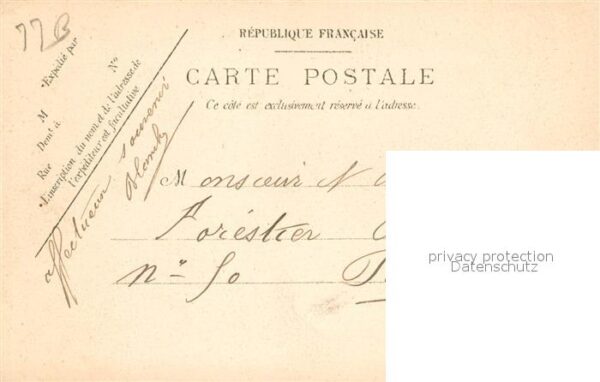 77B
RÉPUBLIQUE FRANÇAISE
CARTE POSTALE
Ce côté est exclusivement réservé a l'adresse.
Expédié par
M
Nº
Demt à
Rue
L'inscription du nom et de l'adresse de
l'expéditeur est facultative
affectueux souvenir
Monsoeur N
Foréstier
Nº 50
privacy protection
Datenschutz